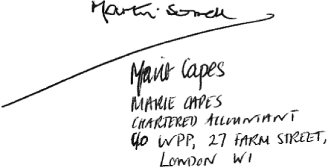 Martin Sorrell
Marie Capes
MARIE CAPES
CHARTERED ACCOUNTANT
c/o WPP, 27 FARM STREET,
LONDON W1